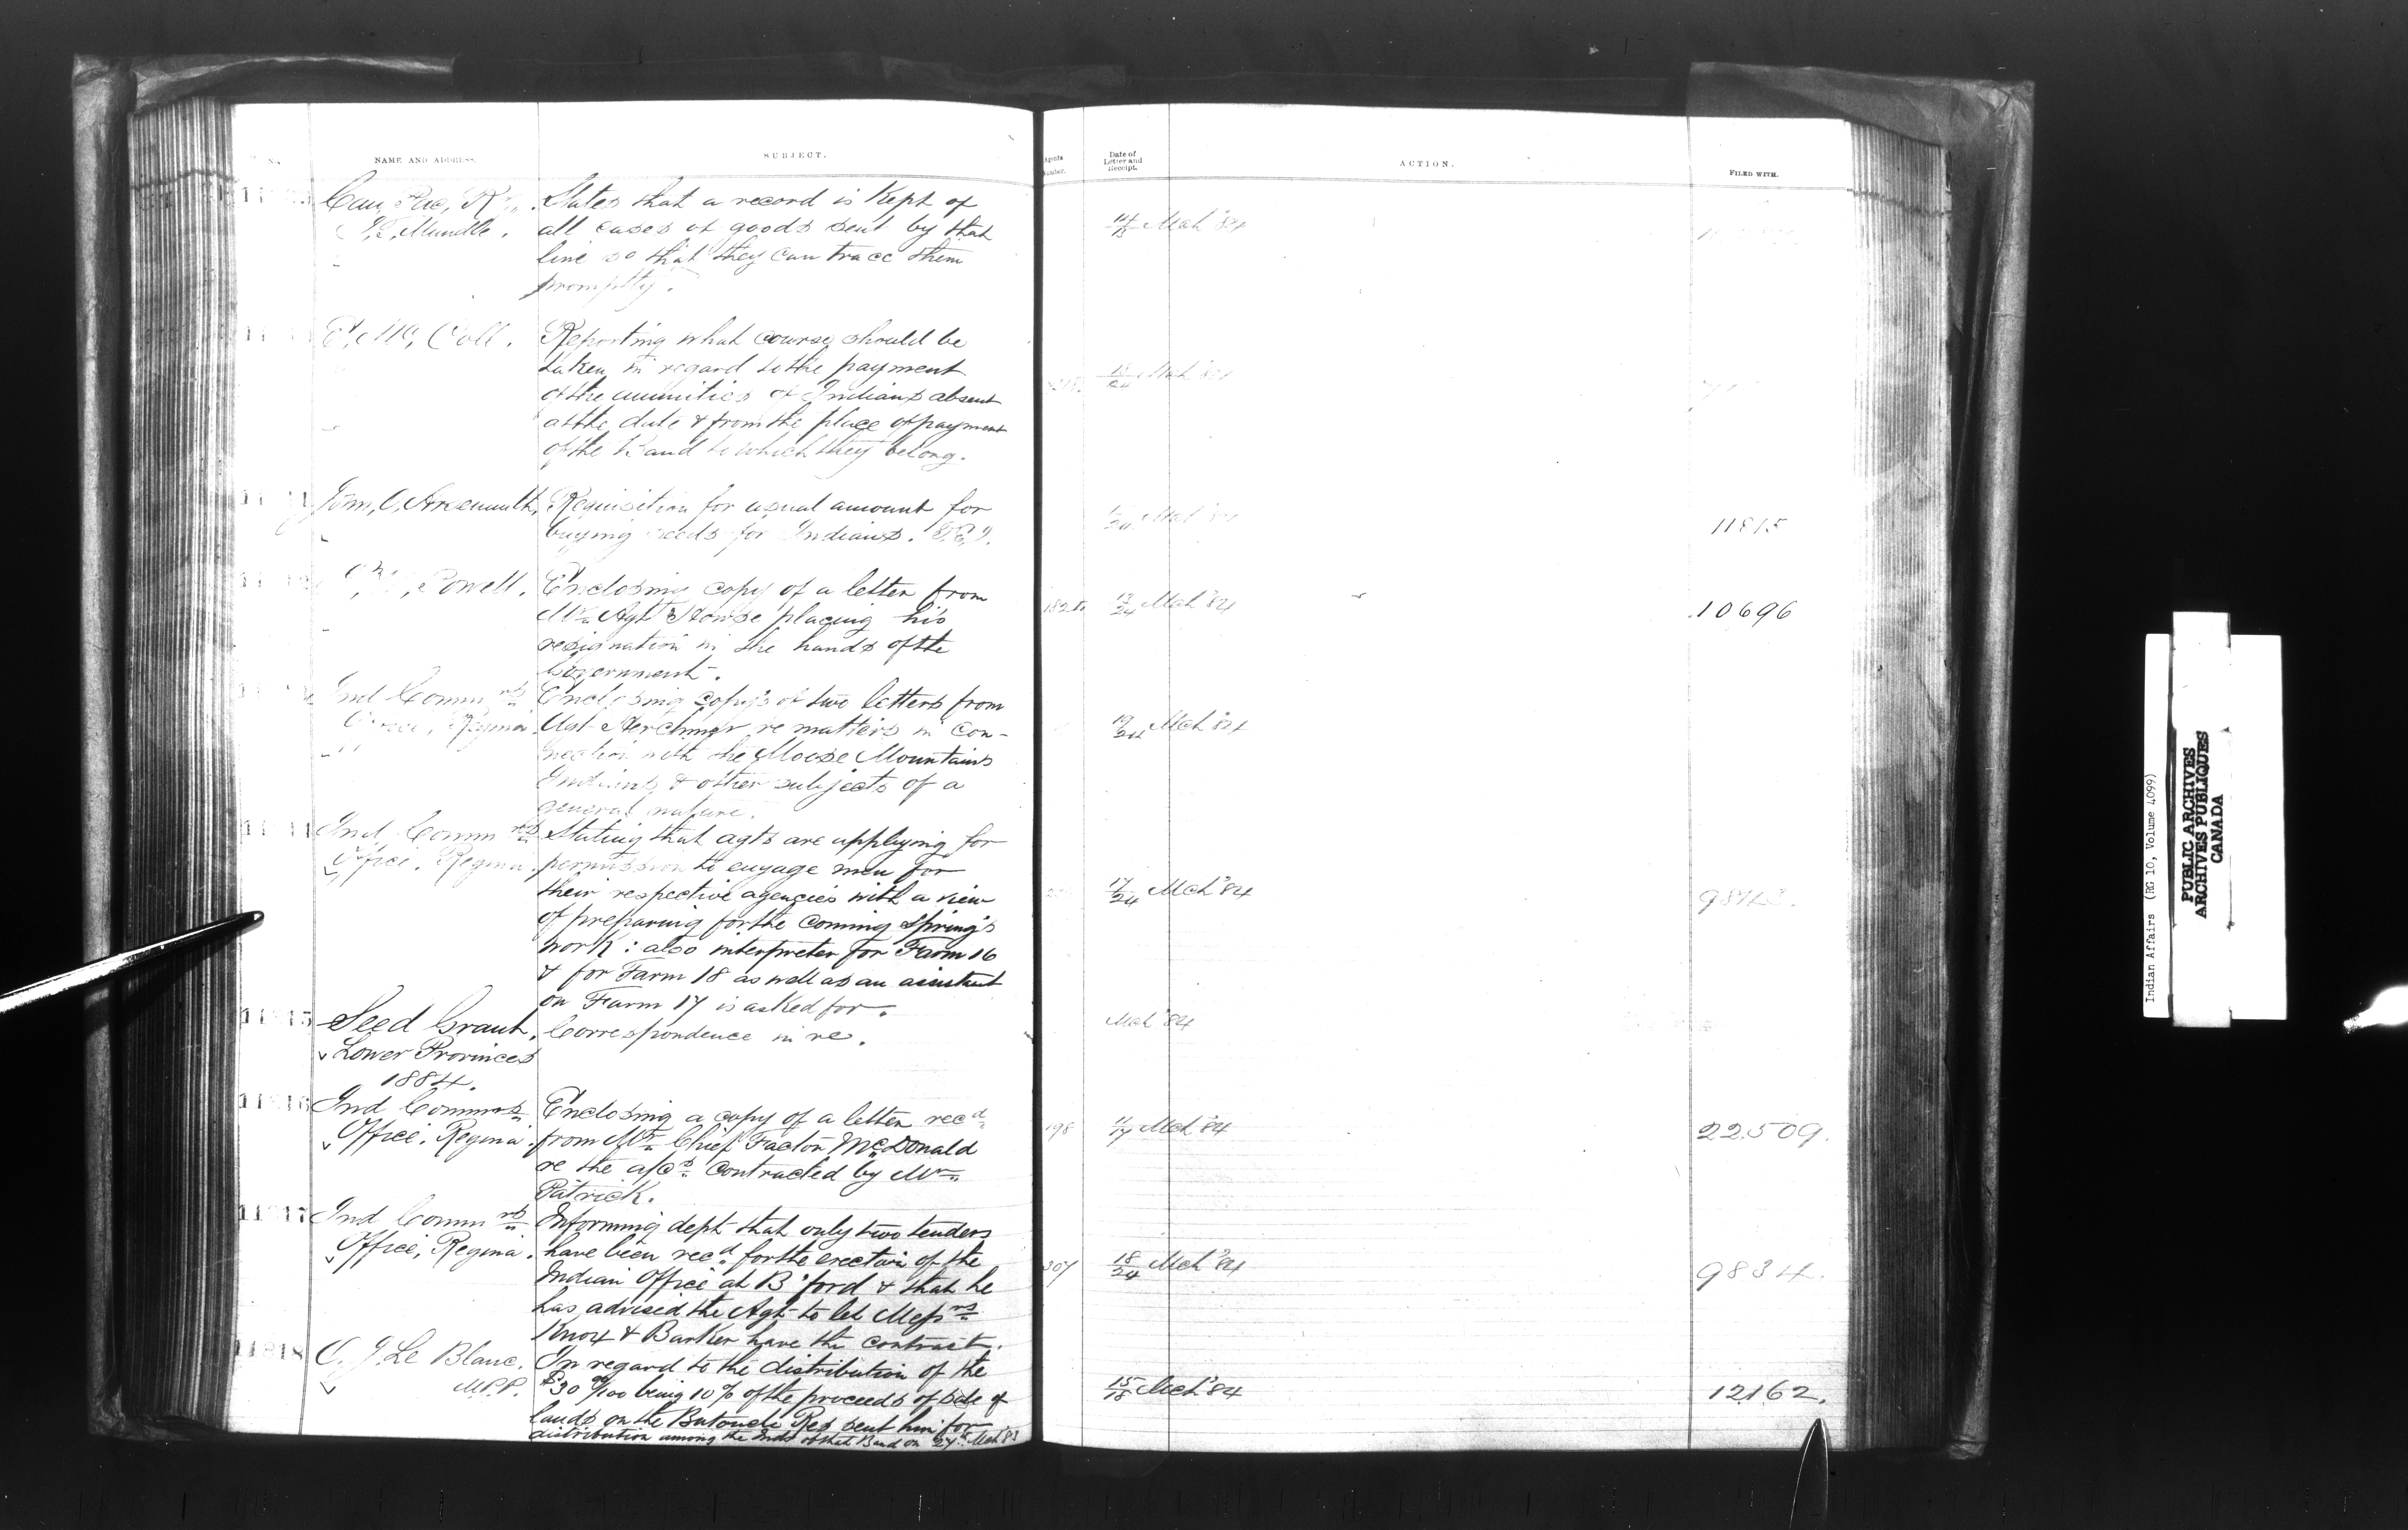 No.
NAME AND ADDRESS.
SUBJECT.
Agents Number.
Date of Letter and Receipt.
ACTION.
FILED WITH.
Can, Pac, Ry,. States that a record is kept of
Mundle. all cases of goods sent by that 14/18 Mch '84
line so that they can trace them
promptly.
E, Mc, Coll. Reporting what course should be
taken in regard to the payment
of the annuities of Indians absent Mch '84
at the date & from the place of payment
of the Band to which they belong.
Jom, O, Arsenault, Requisition for usual amount for
buying seeds for Indians. P.E.I. Mch '84 11815
Powell. Enclosing copy of a letter from
Mr. Agt Howse placing his 13/24 Mch '84 10696
resignation in the hands of the
Government.
Ind Commrs Enclosing copys of two letters from
Office, Regina. Agt Herchmer re matters in con- 19/24 Mch '84
nection with the Moose Mountains
Indians & other subjects of a
general nature.
Ind Commrs Stating that agts are applying for
Office. Regina. permission to engage men for
their respective agencies with a view 17/24 Mch '84
of preparing for the coming Spring's
work: also interpreter for Farm 16
& for Farm 18 as well as an assistant
on Farm 17 is asked for.
11815 Seed Grant. Correspondence in re. Mch '84
Lower Provinces
1884.
11816 Ind Commrs Enclosing a copy of a letter recd
Office. Regina. from Mr. Chief Factor McDonald 198 Mch '84 22509.
re the a/cs contracted by Mr.
Patrick.
11817 Ind Commrs Informing dept that only two tenders
Office, Regina. have been recd. for the erection of the 207 18/24 Mch '84 9834.
Indian Office at B'ford & that he
has advised the Agt to let Messrs
Knox & Barker have the contract.
11818 O. J. Le Blanc. In regard to the distribution of the
M.P.P. $30 00/100 being 10% of the proceeds of sale of 15/18 Mch '84 12162.
lands on the Butouche Res sent him for
distribution among the Inds of that Band on 27th Mch '83
Indian Affairs (RG 10, Volume 4099)
PUBLIC ARCHIVES
ARCHIVES PUBLIQUES
CANADA